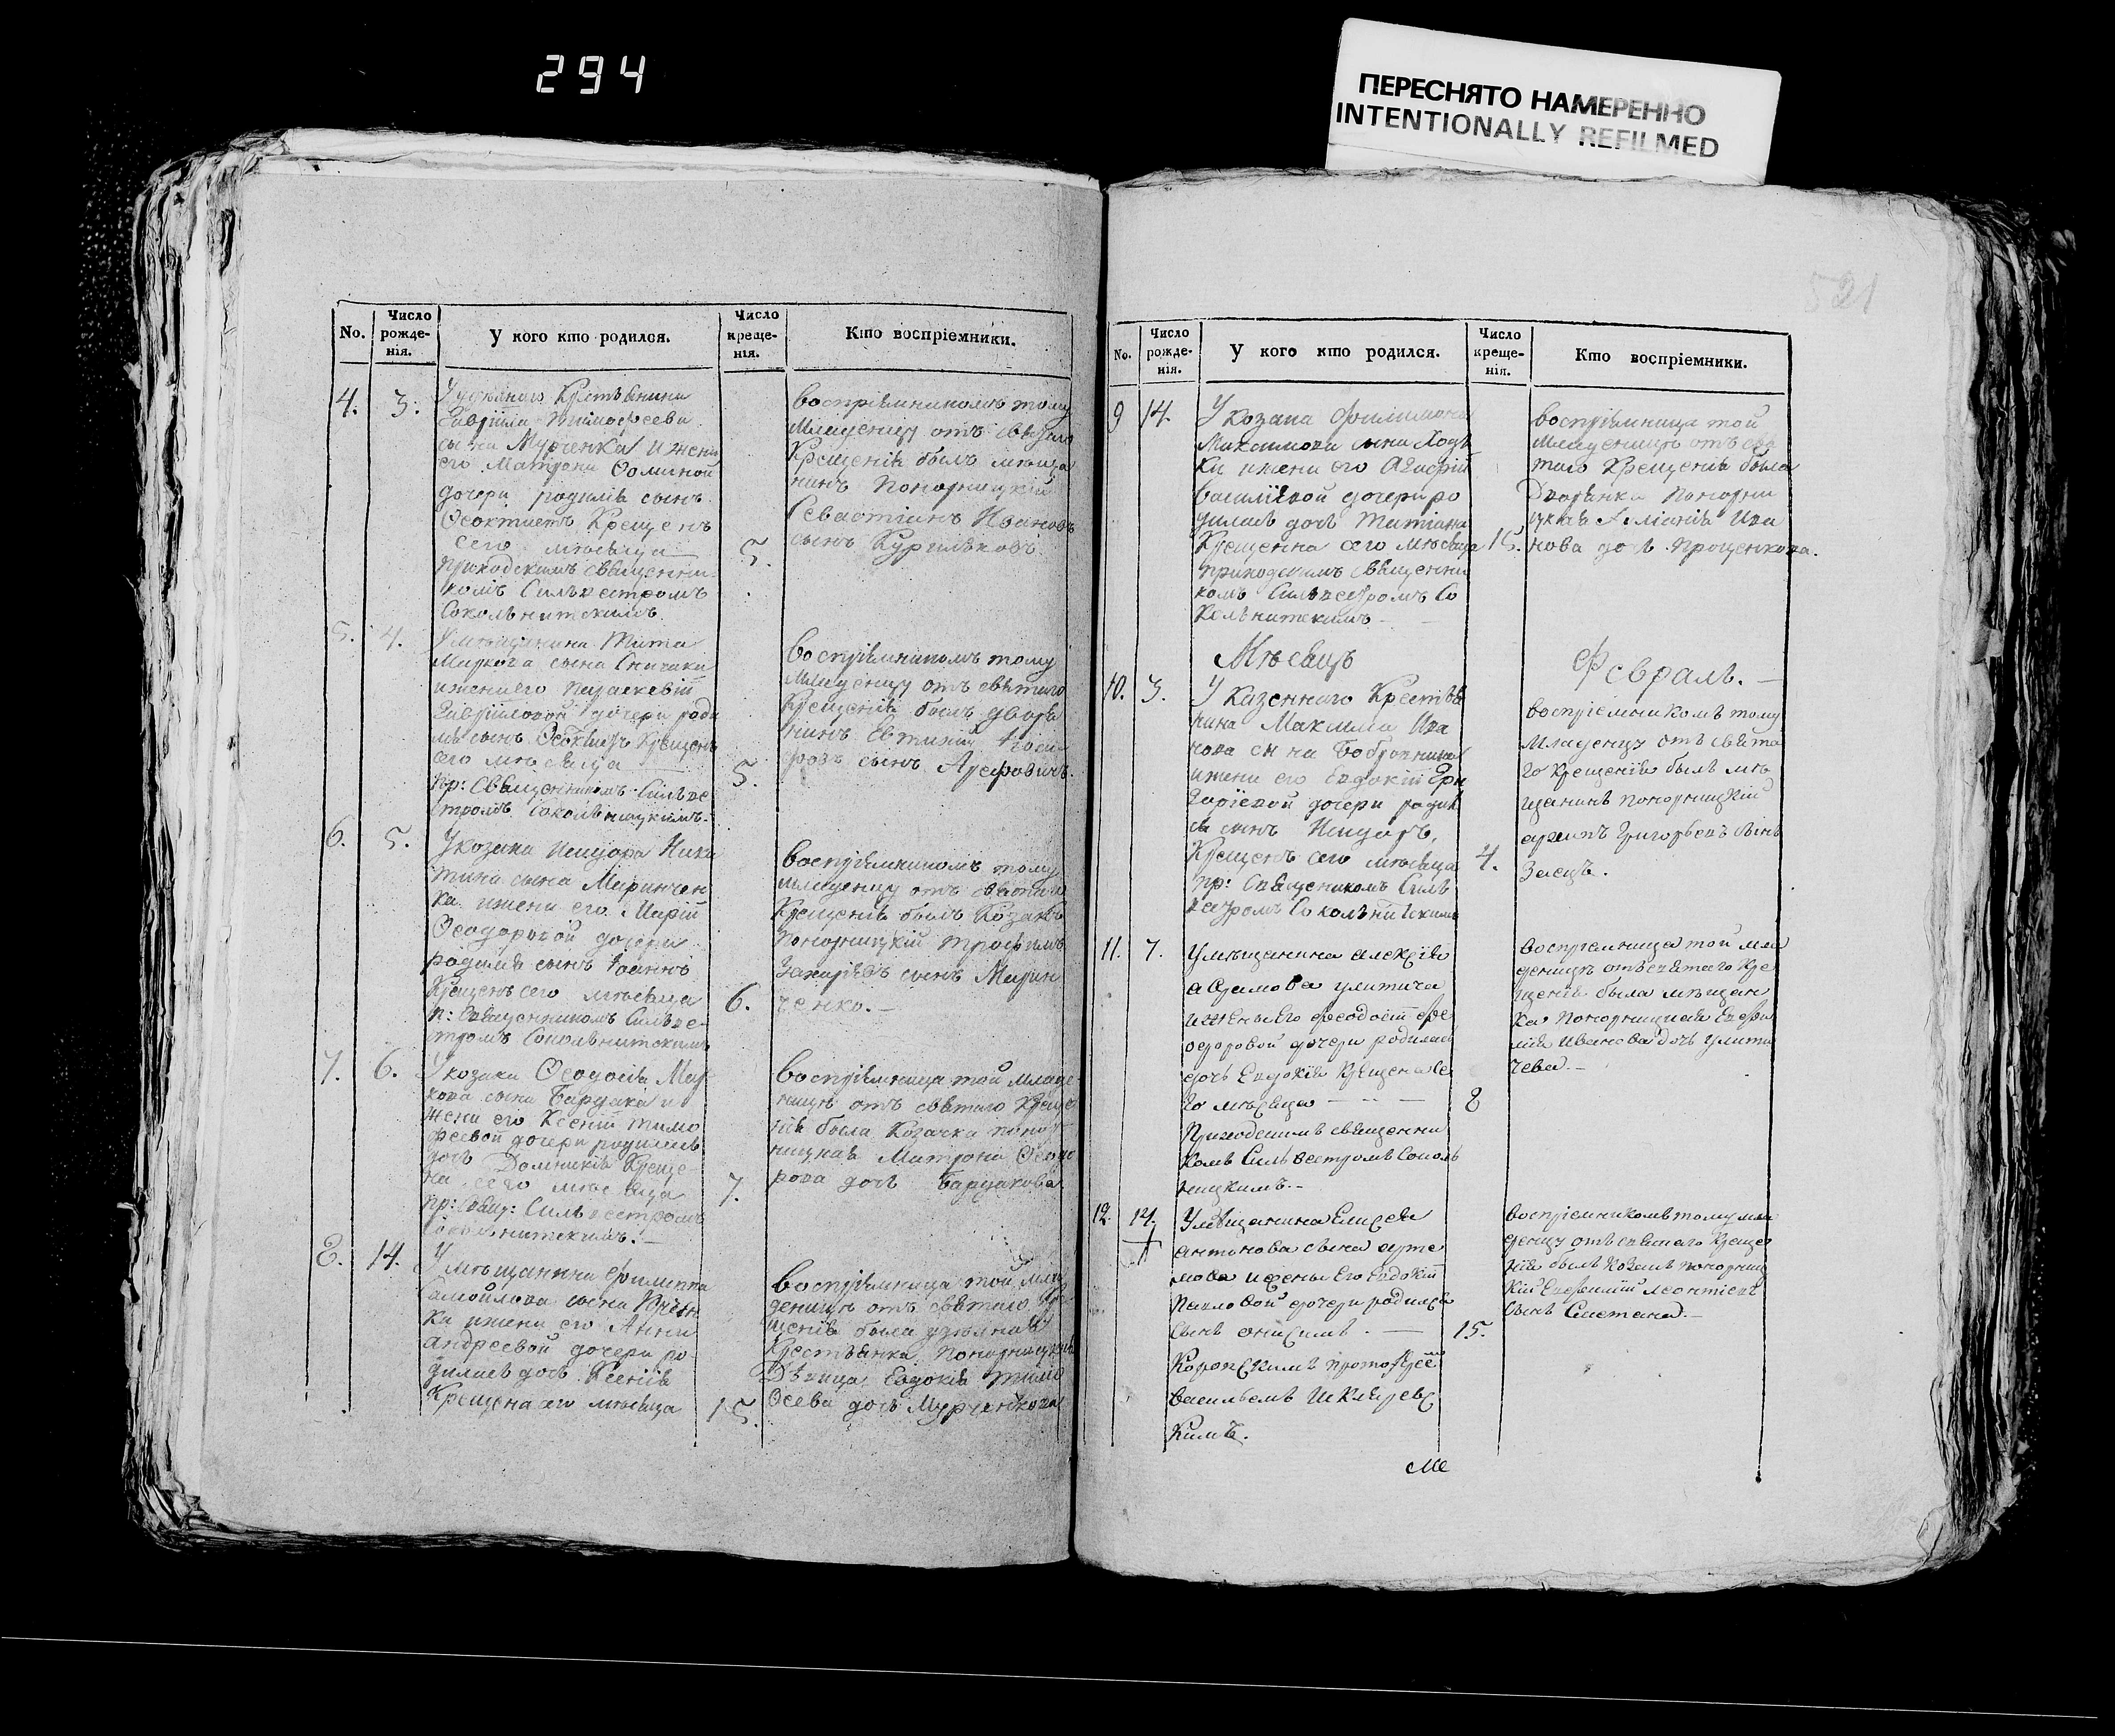 294
ПЕРЕСНЯТО НАМЕРЕННО
INTENTIONALLY REFILMED
521
No.
Число рожде- нія.
У кого кто родился.
Число креще- нія.
Кто воспріемники.
4. 3.
Крестьянина
Гавріила Тимофеева
сына Мурченка и жены
его Матроны Фоминой
дочери родился сынъ
Ѳеоктистъ Крещенъ
сего мѣсяца
5.
приходскимъ священни
комъ Сильвестромъ
Сокольнитскимъ
воспріемникомъ тому
младенцу отъ святаго
Крещенія былъ мѣща
нинъ Понорницкій
Севастіанъ Ивановъ
сынъ
5. 4.
У мѣщанина Тита
Маркова сына
и жены его Параскевіи
Гавріиловой дочери роди
лся сынъ Ѳеоктистъ Крещенъ
сего мѣсяца
5.
пр: Священникомъ Сильве
стромъ Сокольницкимъ.
воспріемникомъ тому
младенцу отъ святаго
Крещенія былъ дворя
нинъ Евтихій
сынъ
6. 5.
У козака Исидора Ники
тина сына Маринчен
ка и жены его Маріи
Ѳеодоровой дочери
родился сынъ Іоаннъ
Крещенъ сего мѣсяца
6.
п: Священникомъ Сильве-
стромъ Сокольнитскимъ
воспріемникомъ тому
младенцу отъ святаго
Крещенія былъ Козакъ
Понорницкій Трофимъ
Захаріевъ сынъ Марин
ченко.-
7. 6.
У козака Ѳеодосія Мар
кова сына Бардака и
жены его Ксеніи Тимо
феевой дочери родилась
дочь Домникія Креще-
на сего мѣсяца
7.
пр: Свящ: Сильвестромъ
Сокольнитскимъ.-
воспріемница той младе
ницѣ отъ святаго Креще
нія была Козачка Понор
ницкая Матрона Ѳеодо
рова дочь Бардакова
8. 14.
У мѣщанина Филиппа
Самойлова сына
ки и жены его Анны
Андреевой дочери ро-
дилась дочь Ксенія
Крещена сего мѣсяца
15.
воспріемница той мла
деницѣ отъ святаго Кре
щенія была
Крестьянка Понорницкая
Дѣвица Евдокія Тимо
Ѳеева дочь Мурченкова
No.
Число рожде- нія.
У кого кто родился.
Число креще- нія.
Кто воспріемники.
9 14.
У козака Филимона
Максимова сына Ходь
ки и жены его Агафіи
Василіевой дочери ро
дилась дочь Татіана
Крещенна сего мѣсяца
15.
приходскимъ священни
комъ Сильвестромъ Со
кольнитскимъ -
воспріемница той
младеницѣ отъ свя
таго Крещенія была
Дворянка Понорни
цкая Ива
нова дочь Проценкова.
Мѣсяцъ
Февраль. -
10. 3.
У Казеннаго Крестья
нина Максима Ива
нова сына Бобропника
и жены его Евдокіи Гри
горіевой дочери родил
ся сынъ Исидоръ,
Крещенъ сего мѣсяца
4.
пр: Священикомъ Силь
вестромъ Сокольнитскимъ
воспріемникомъ тому
младенцу отъ свята
го крещенія былъ мѣ
щанинъ понорницкій
архипъ Григорьевъ сынъ
Заецъ.
11. 7.
У мѣщанина алексѣя
адамова улитича
и жены Его феодосіи фе
одоровой дочери родилась
дочь Евдокія Крещена се
го мѣсяца
8
Приходскимъ священни
комъ Сильвестромъ Соколь
ницкимъ.-
воспріемница той мла
деницѣ отъ святаго Кре
щенія была мѣщан
ка понорницкая Евфи
мія Иванова дочь улити
чева.-
12. 14.
У мѣщанина Елисея
антонова сына арте
мова и жены Его Евдокіи
Павловой дочери родился
сынъ онисимъ . -
15.
Коропскимъ протоіерее
васильемъ Шкляревс
кимъ.
воспріемникомъ тому мла
денцу отъ святаго Креще
нія былъ Козакъ понорниц
кій Евфимій леонтіевъ
сынъ Сметана.-
Ме